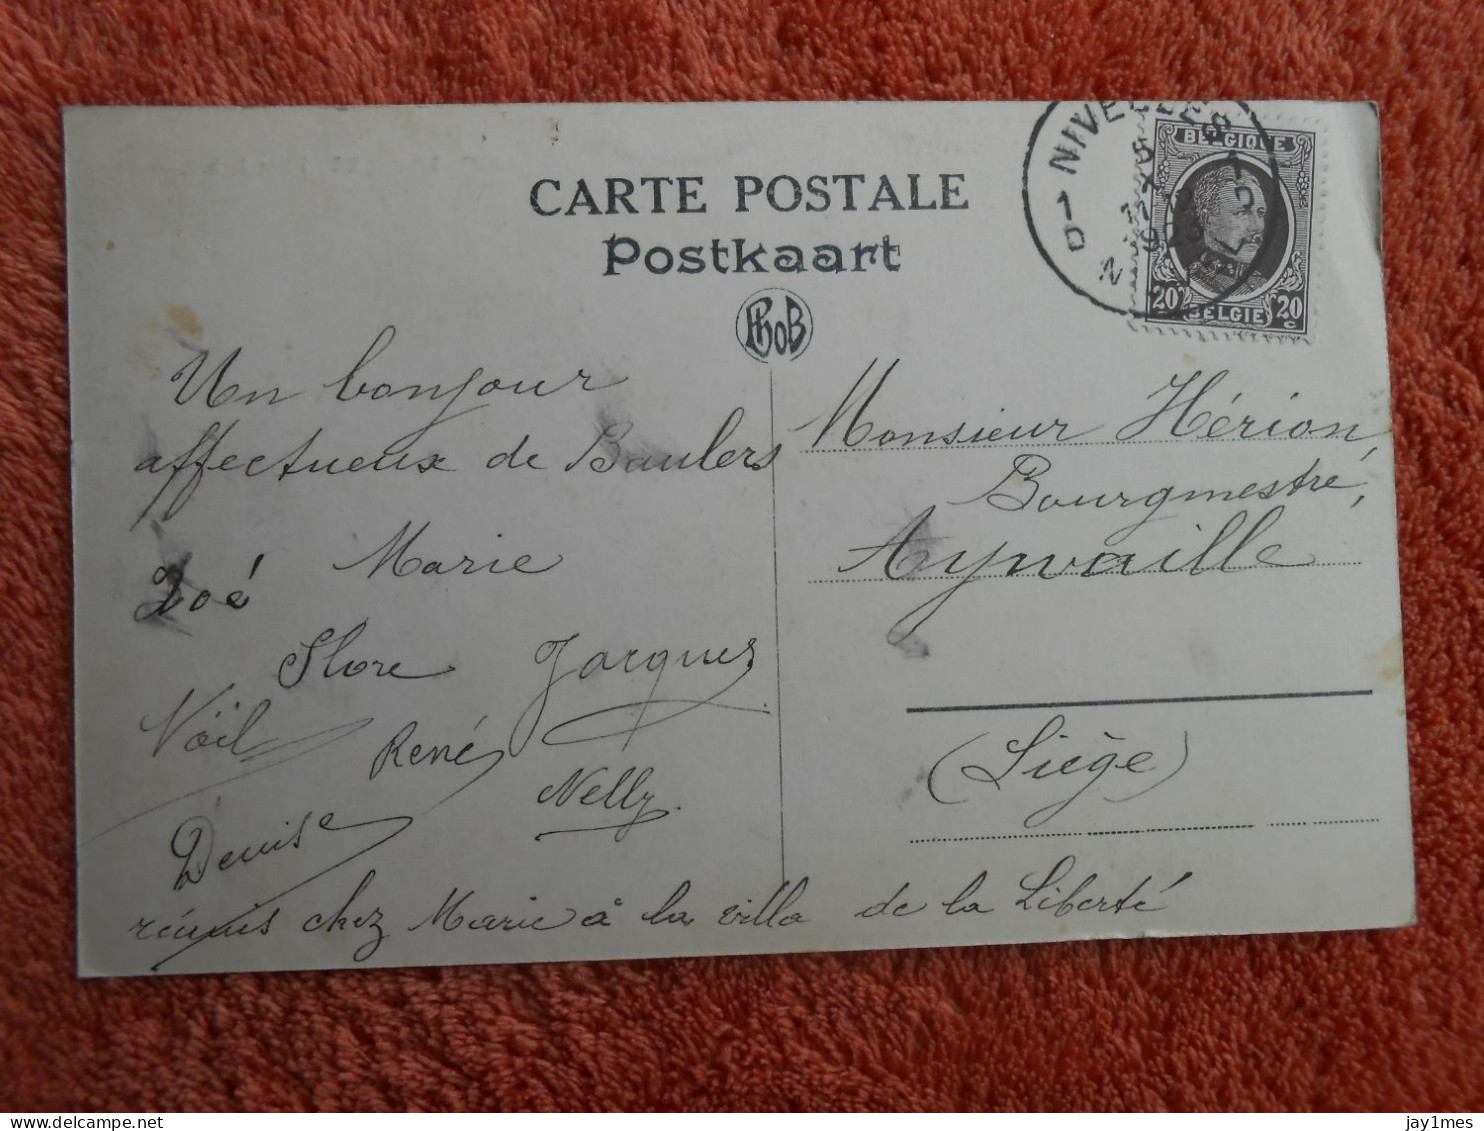 CARTE POSTALE
Postkaart
PhoB
NIVELLES
BELGIQUE
20c BELGIE 20c
Un bonjour
affectueux de Baulers
Zoé Marie
Flore Jacques
Noël René
Nelly
Denise
réunis chez Marie à la villa de la Liberté
Monsieur Hérion
Bourgmestre,
Aywaille
(Liège)
jay1mes